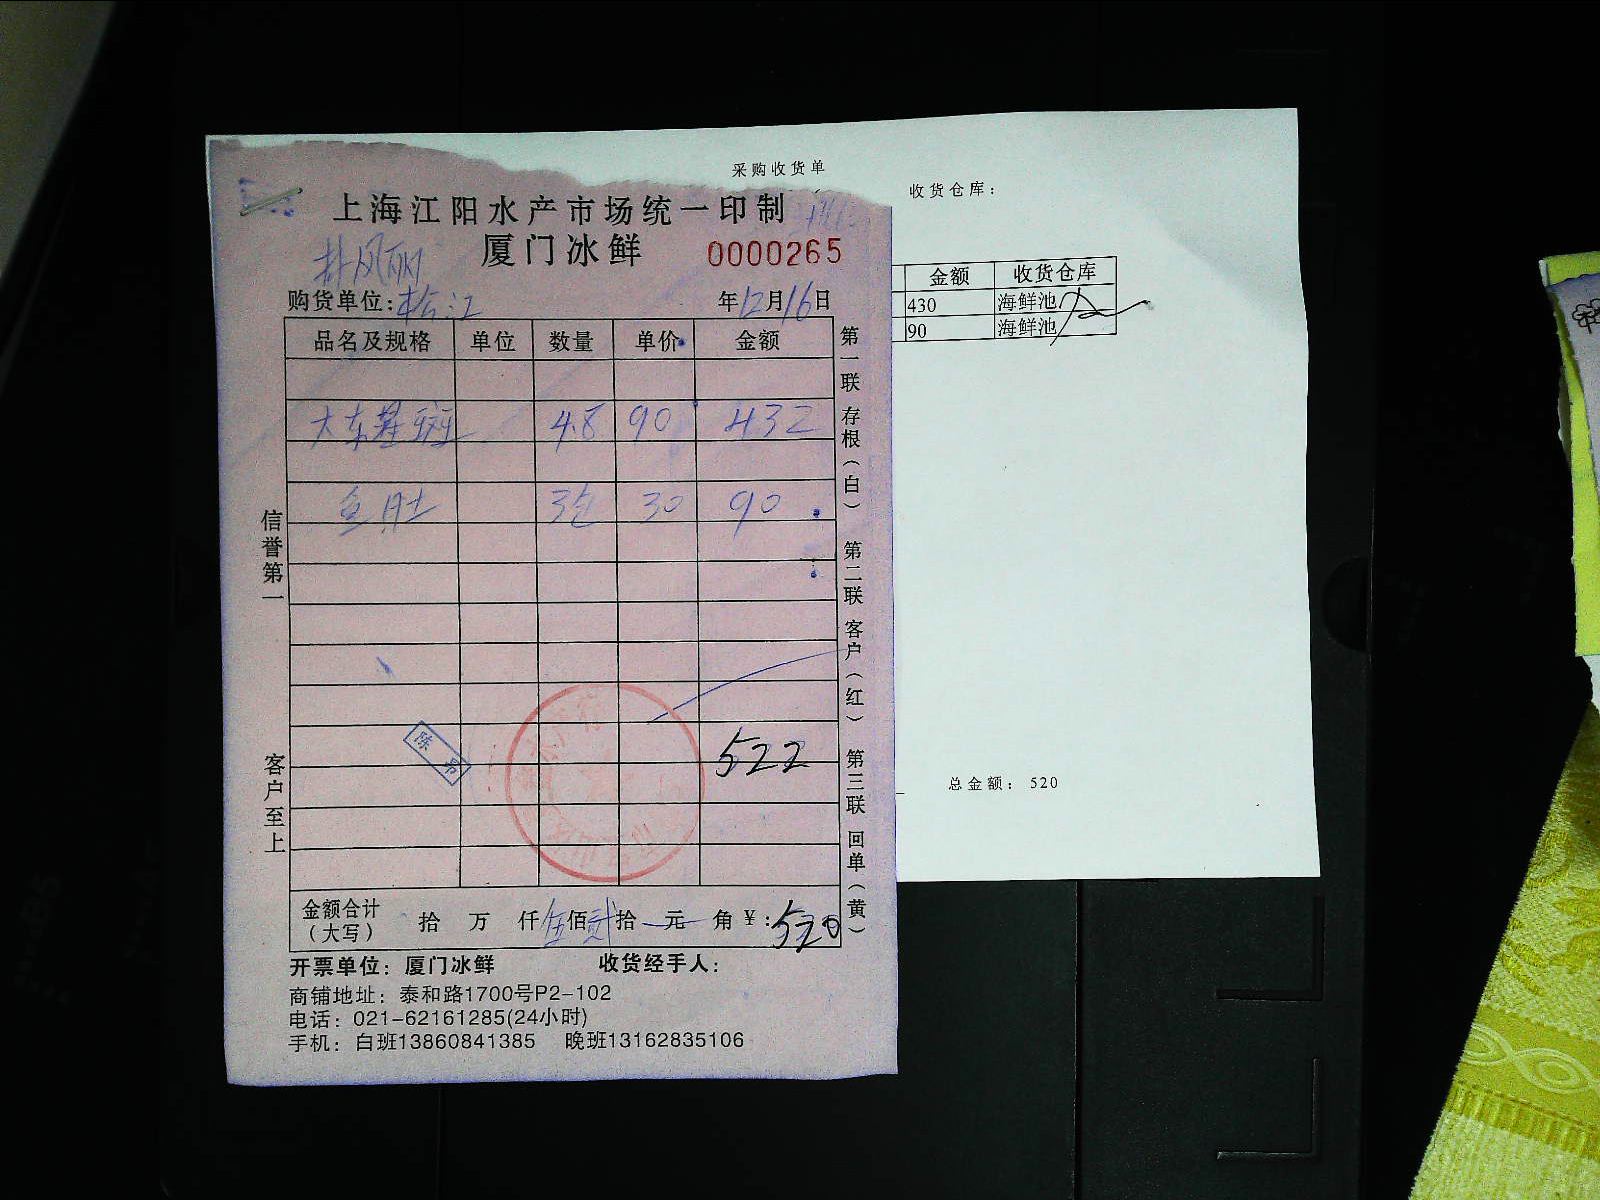 采购收货单
收货仓库：
金额 收货仓库
430 海鲜池
90 海鲜池
总金额： 520
上海江阳水产市场统一印制
厦门冰鲜 0000265
购货单位：松江 年12月16日
品名及规格 单位 数量 单价 金额
大东星斑 4.8 90 432
鱼肚 3包 30 90
522
金额合计（大写） 拾 万 仟伍佰贰拾元 角￥：520
开票单位：厦门冰鲜 收货经手人：
商铺地址：泰和路1700号P2-102
电话：021-62161285(24小时)
手机：白班13860841385 晚班13162835106
信誉第一
客户至上
第一联 存根（白） 第二联 客户（红） 第三联 回单（黄）